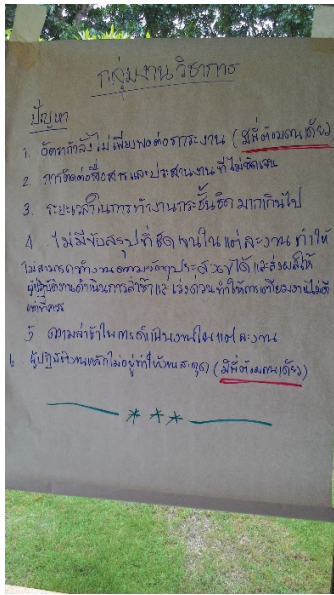 กลุ่มงานวิชาการ
ปัญหา
1. อัตรากำลังไม่เพียงพอต่อภาระงาน (มีพี่ต้อมคนเดียว)
2. การติดต่อสื่อสารและประสานงานที่ไม่ชัดเจน
3. ระยะเวลาในการทำงานกระชั้นชิดมากเกินไป
4. ไม่มีข้อสรุปที่ชัดเจนในแต่ละงาน ทำให้
ไม่สามารถทำงานตามวัตถุประสงค์ได้และส่งผลให้
ผู้ปฏิบัติงานดำเนินการล่าช้าและเร่งด่วนทำให้การเตรียมงานไม่ดี
เท่าที่ควร
5 ความล่าช้าในการดำเนินงานในแต่ละงาน
6. ผู้ปฏิบัติงานหลักไม่อยู่ทำให้งานสะดุด (มีพี่ต้อมคนเดียว)